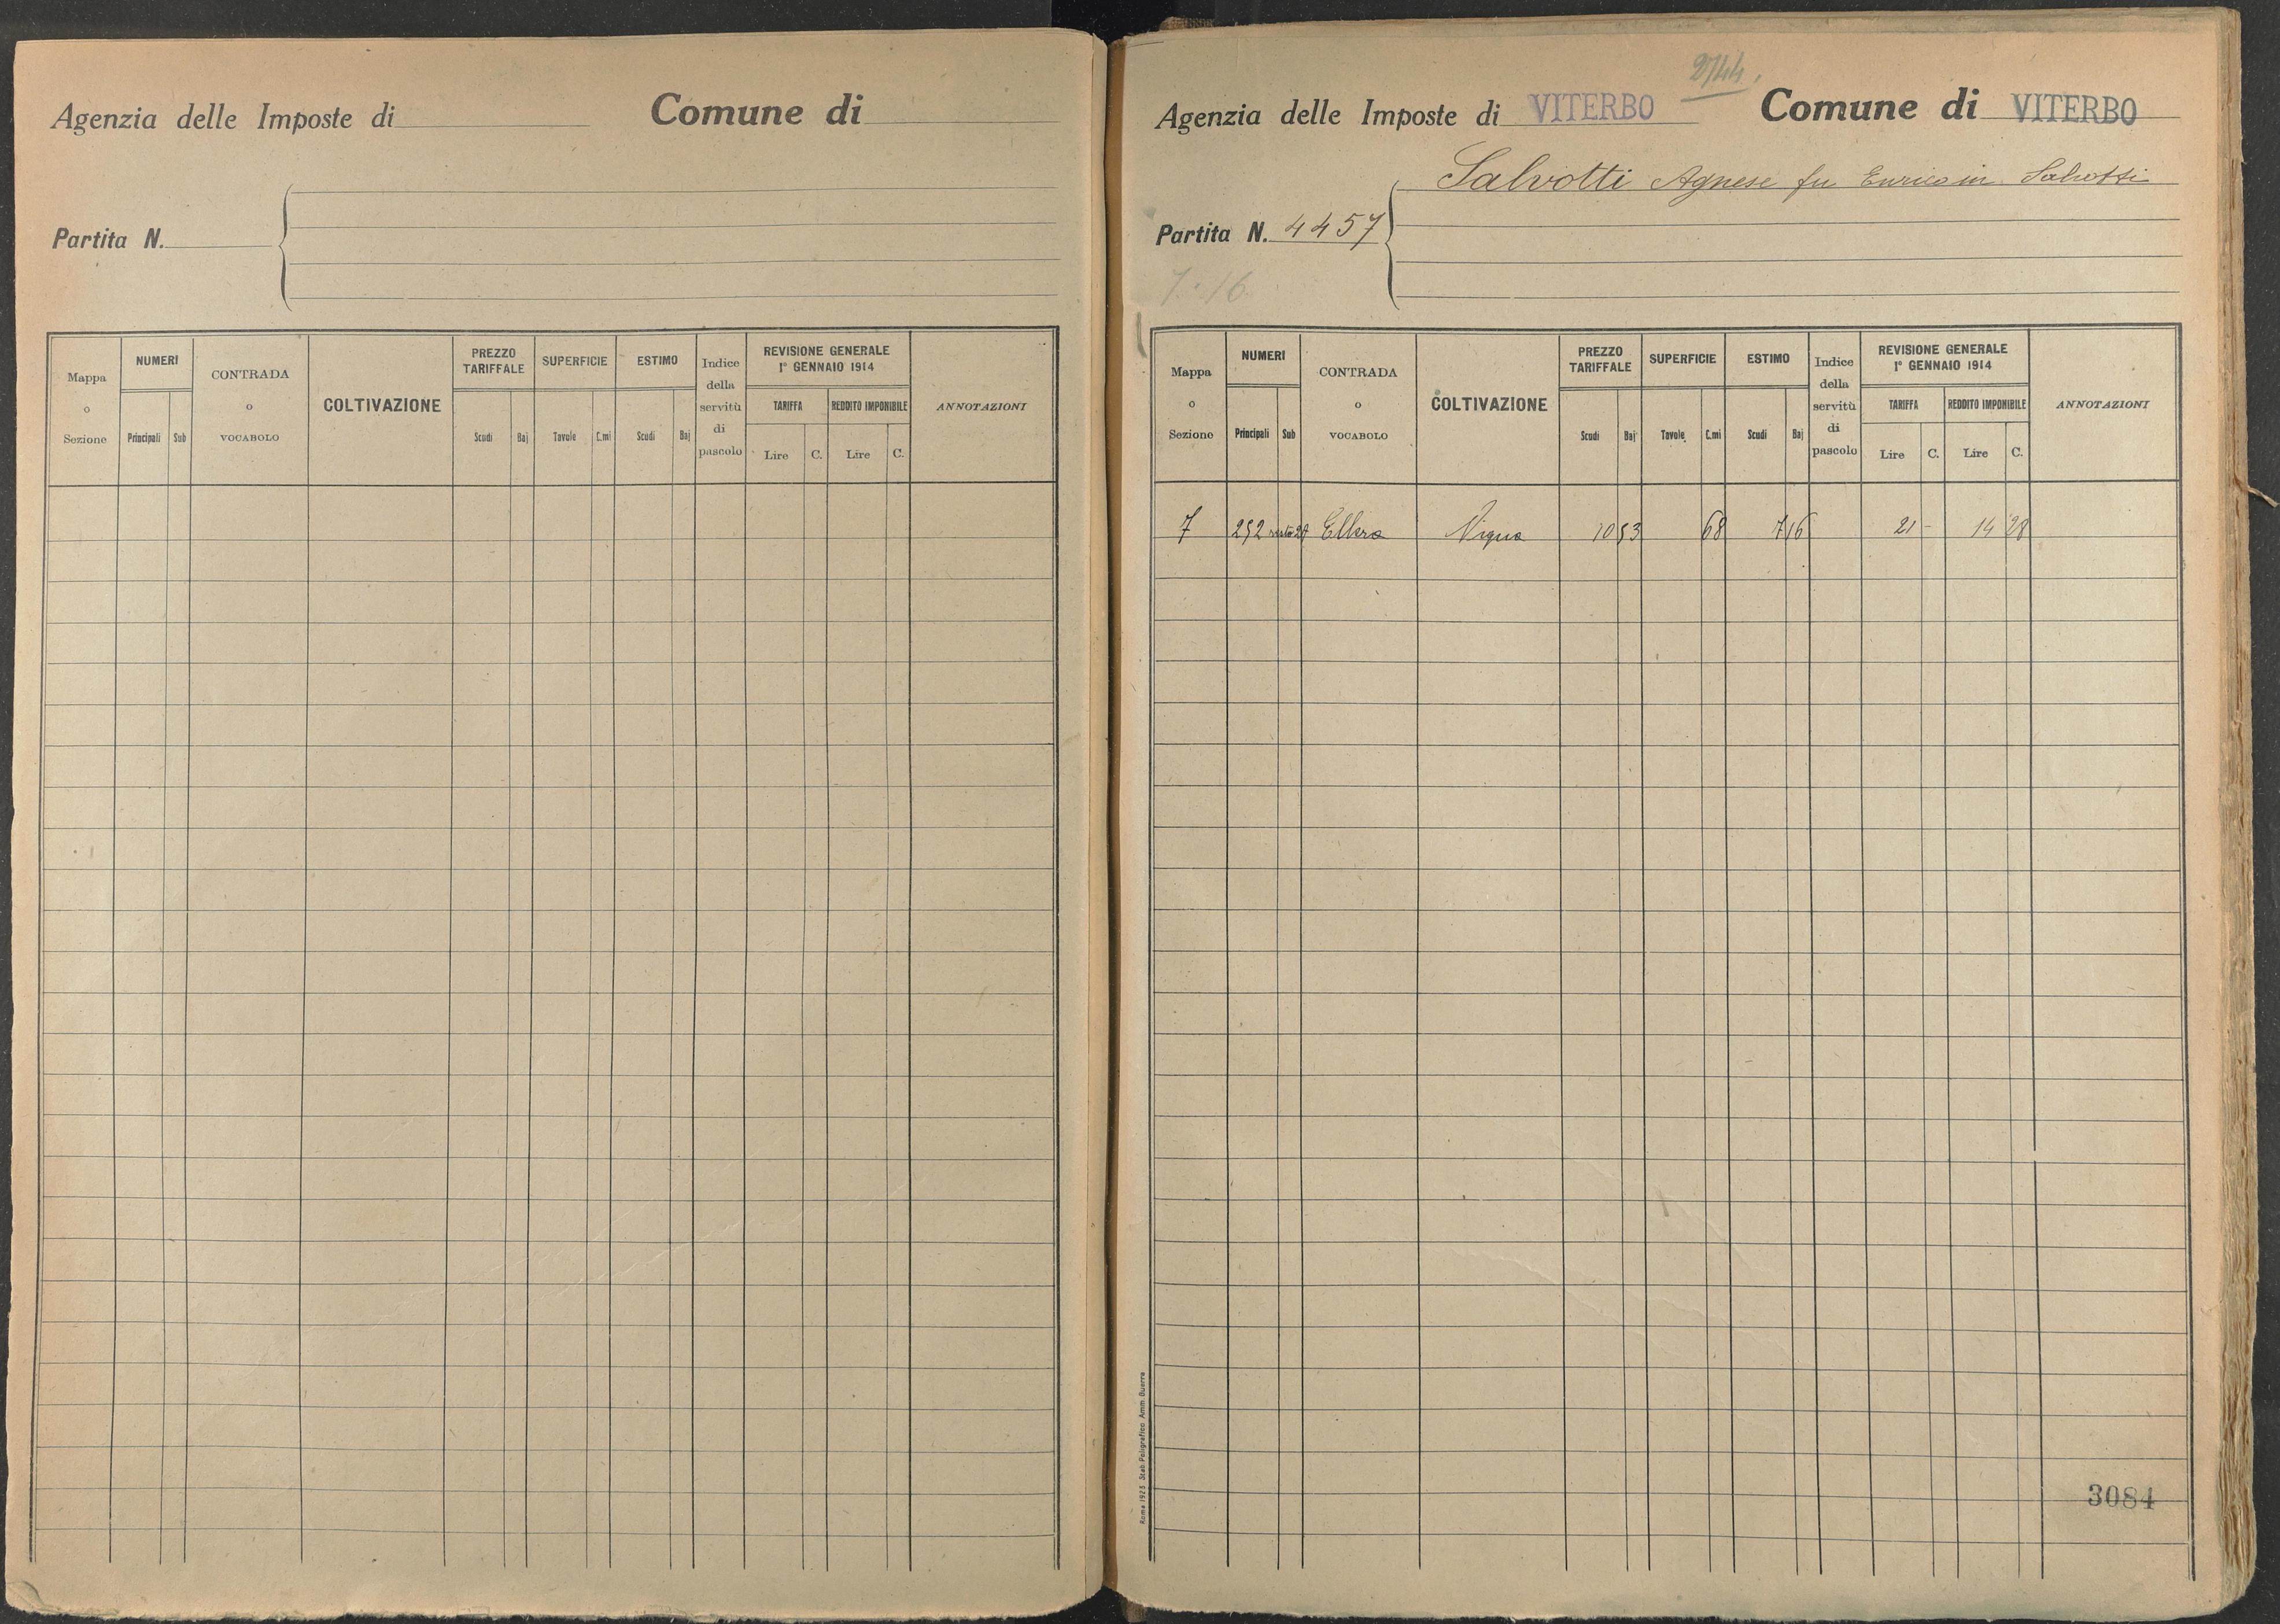 Agenzia delle Imposte di Comune di
Partita N.
Mappa o Sezione
NUMERI
Principali Sub
CONTRADA o VOCABOLO
COLTIVAZIONE
PREZZO TARIFFALE
Scudi Baj
SUPERFICIE
Tavole C.mi
ESTIMO
Scudi Baj
Indice della servitù di pascolo
REVISIONE GENERALE
1° GENNAIO 1914
TARIFFA REDDITO IMPONIBILE
Lire C. Lire C.
ANNOTAZIONI
2744
Agenzia delle Imposte di VITERBO Comune di VITERBO
Salvotti Agnese fu Enrico in Salvotti
Partita N. 4457
7.16
Mappa o Sezione
NUMERI
Principali Sub
CONTRADA o VOCABOLO
COLTIVAZIONE
PREZZO TARIFFALE
Scudi Baj
SUPERFICIE
Tavole C.mi
ESTIMO
Scudi Baj
Indice della servitù di pascolo
REVISIONE GENERALE
1° GENNAIO 1914
TARIFFA REDDITO IMPONIBILE
Lire C. Lire C.
ANNOTAZIONI
7 252 Ellera Vigna 10 53 68 7 16 21 - 14 28
3084
Roma 1923 Stab. Poligrafico Amm. Guerra